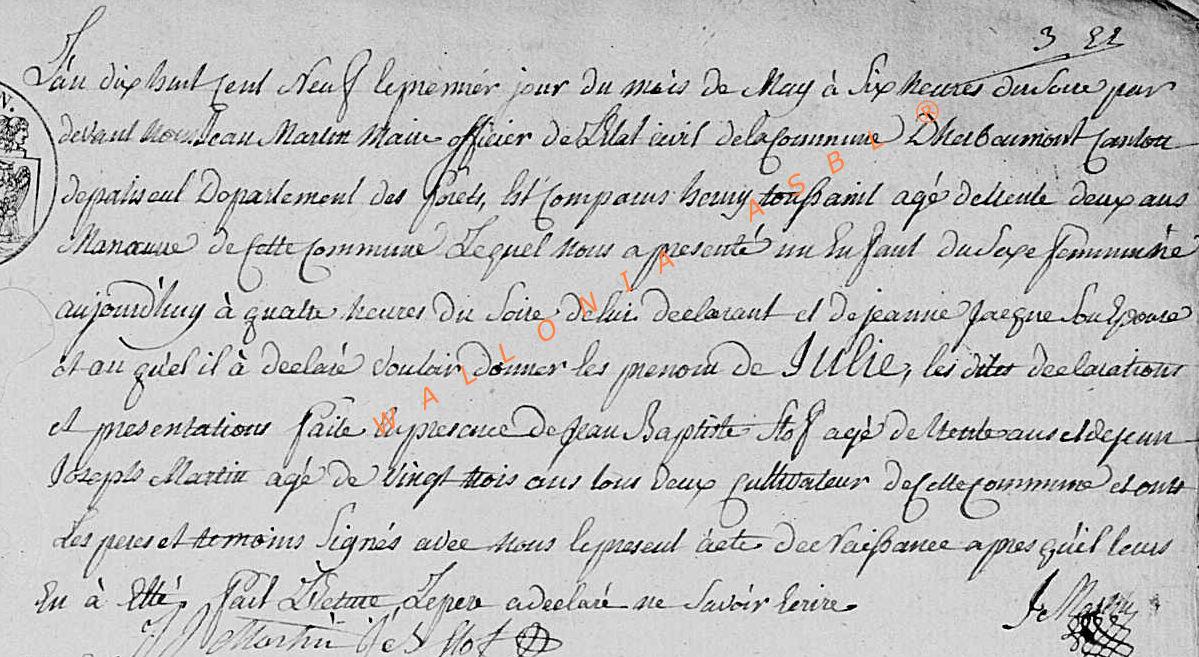 3 22
L'an dix huit Cent Neuf le premier jour du mois de May à Six heures du Soire par
devant nous Jean Martin Maire officier de L'Etat Civil de la Commune D'herbeumont Canton
de paliseul Departement des forêts, Est Comparus henry toussaint agé de trente deux ans
Manœuvre de Cette Commune Lequel nous a presenté un Enfant du Sexe feminin né
aujourd'huy à quatre heures du Soire de lui declarant et de jeanne Jacque Son Epouse
et au qu'el il à declaré vouloir donner les prenom de JULIE, les dites declarations
et presentations faite En presence de Jean Baptiste Stof agé de trente ans et de jean
Joseph Martin agé de vingt trois ans tous deux Cultivateur de Cette Commune et ont
Les peres et temoins Signés avec nous le present acte de Naissance apres qu'il leurs
En à Etté fait Lecture, Le pere a declaré ne Savoir Ecrire
J: Martin
JJ Martin J B Stof
N.
WALLONIA ASBL ®